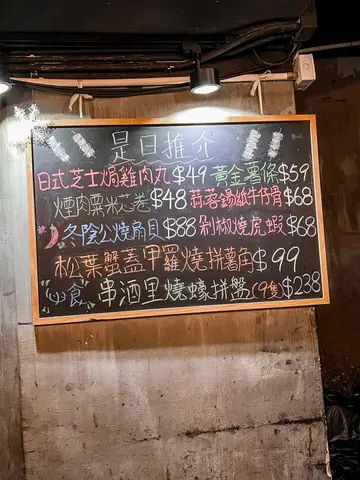 是日推介
日式芝士焗雞肉丸$49 黃金薯條$59
煙肉粟米芯卷$48 蒜蓉錫紙牛仔骨$68
冬陰公燒扇貝$88 剁椒燒虎蝦$68
松葉蟹蓋甲羅燒拼薯角$99
小食 串酒里燒蠔拼盤(9隻)$238